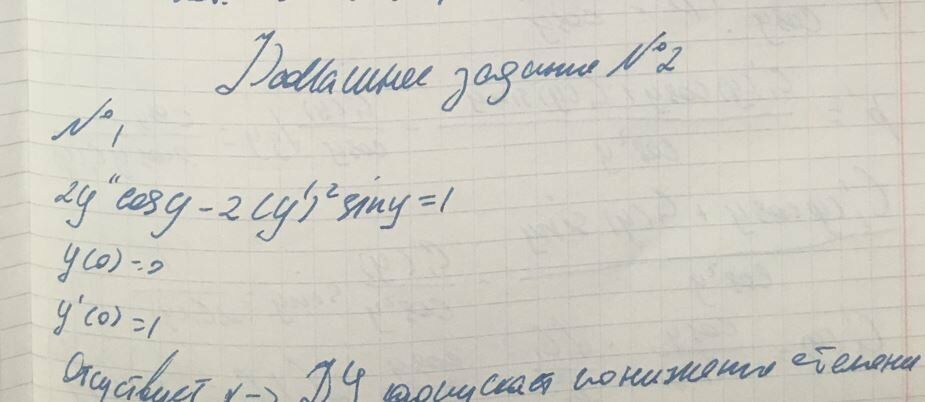 Домашнее задание №2
№1
2y'' cosy - 2(y')² siny = 1
y(0) = 0
y'(0) = 1
Отсуствует x → ДУ допускает понижение степени